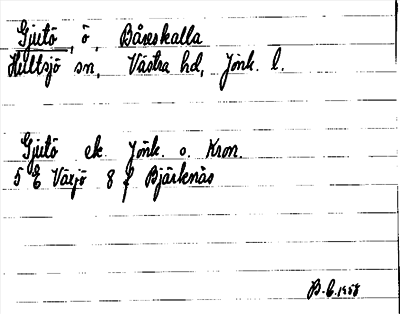 Gjutö, ö, Båreskalla
Hultsjö sn, Västra hd, Jönk. l.
Gjutö ek Jönk. o. Kron.
5 E Växjö 8 f Bjärknäs
B.C. 1958